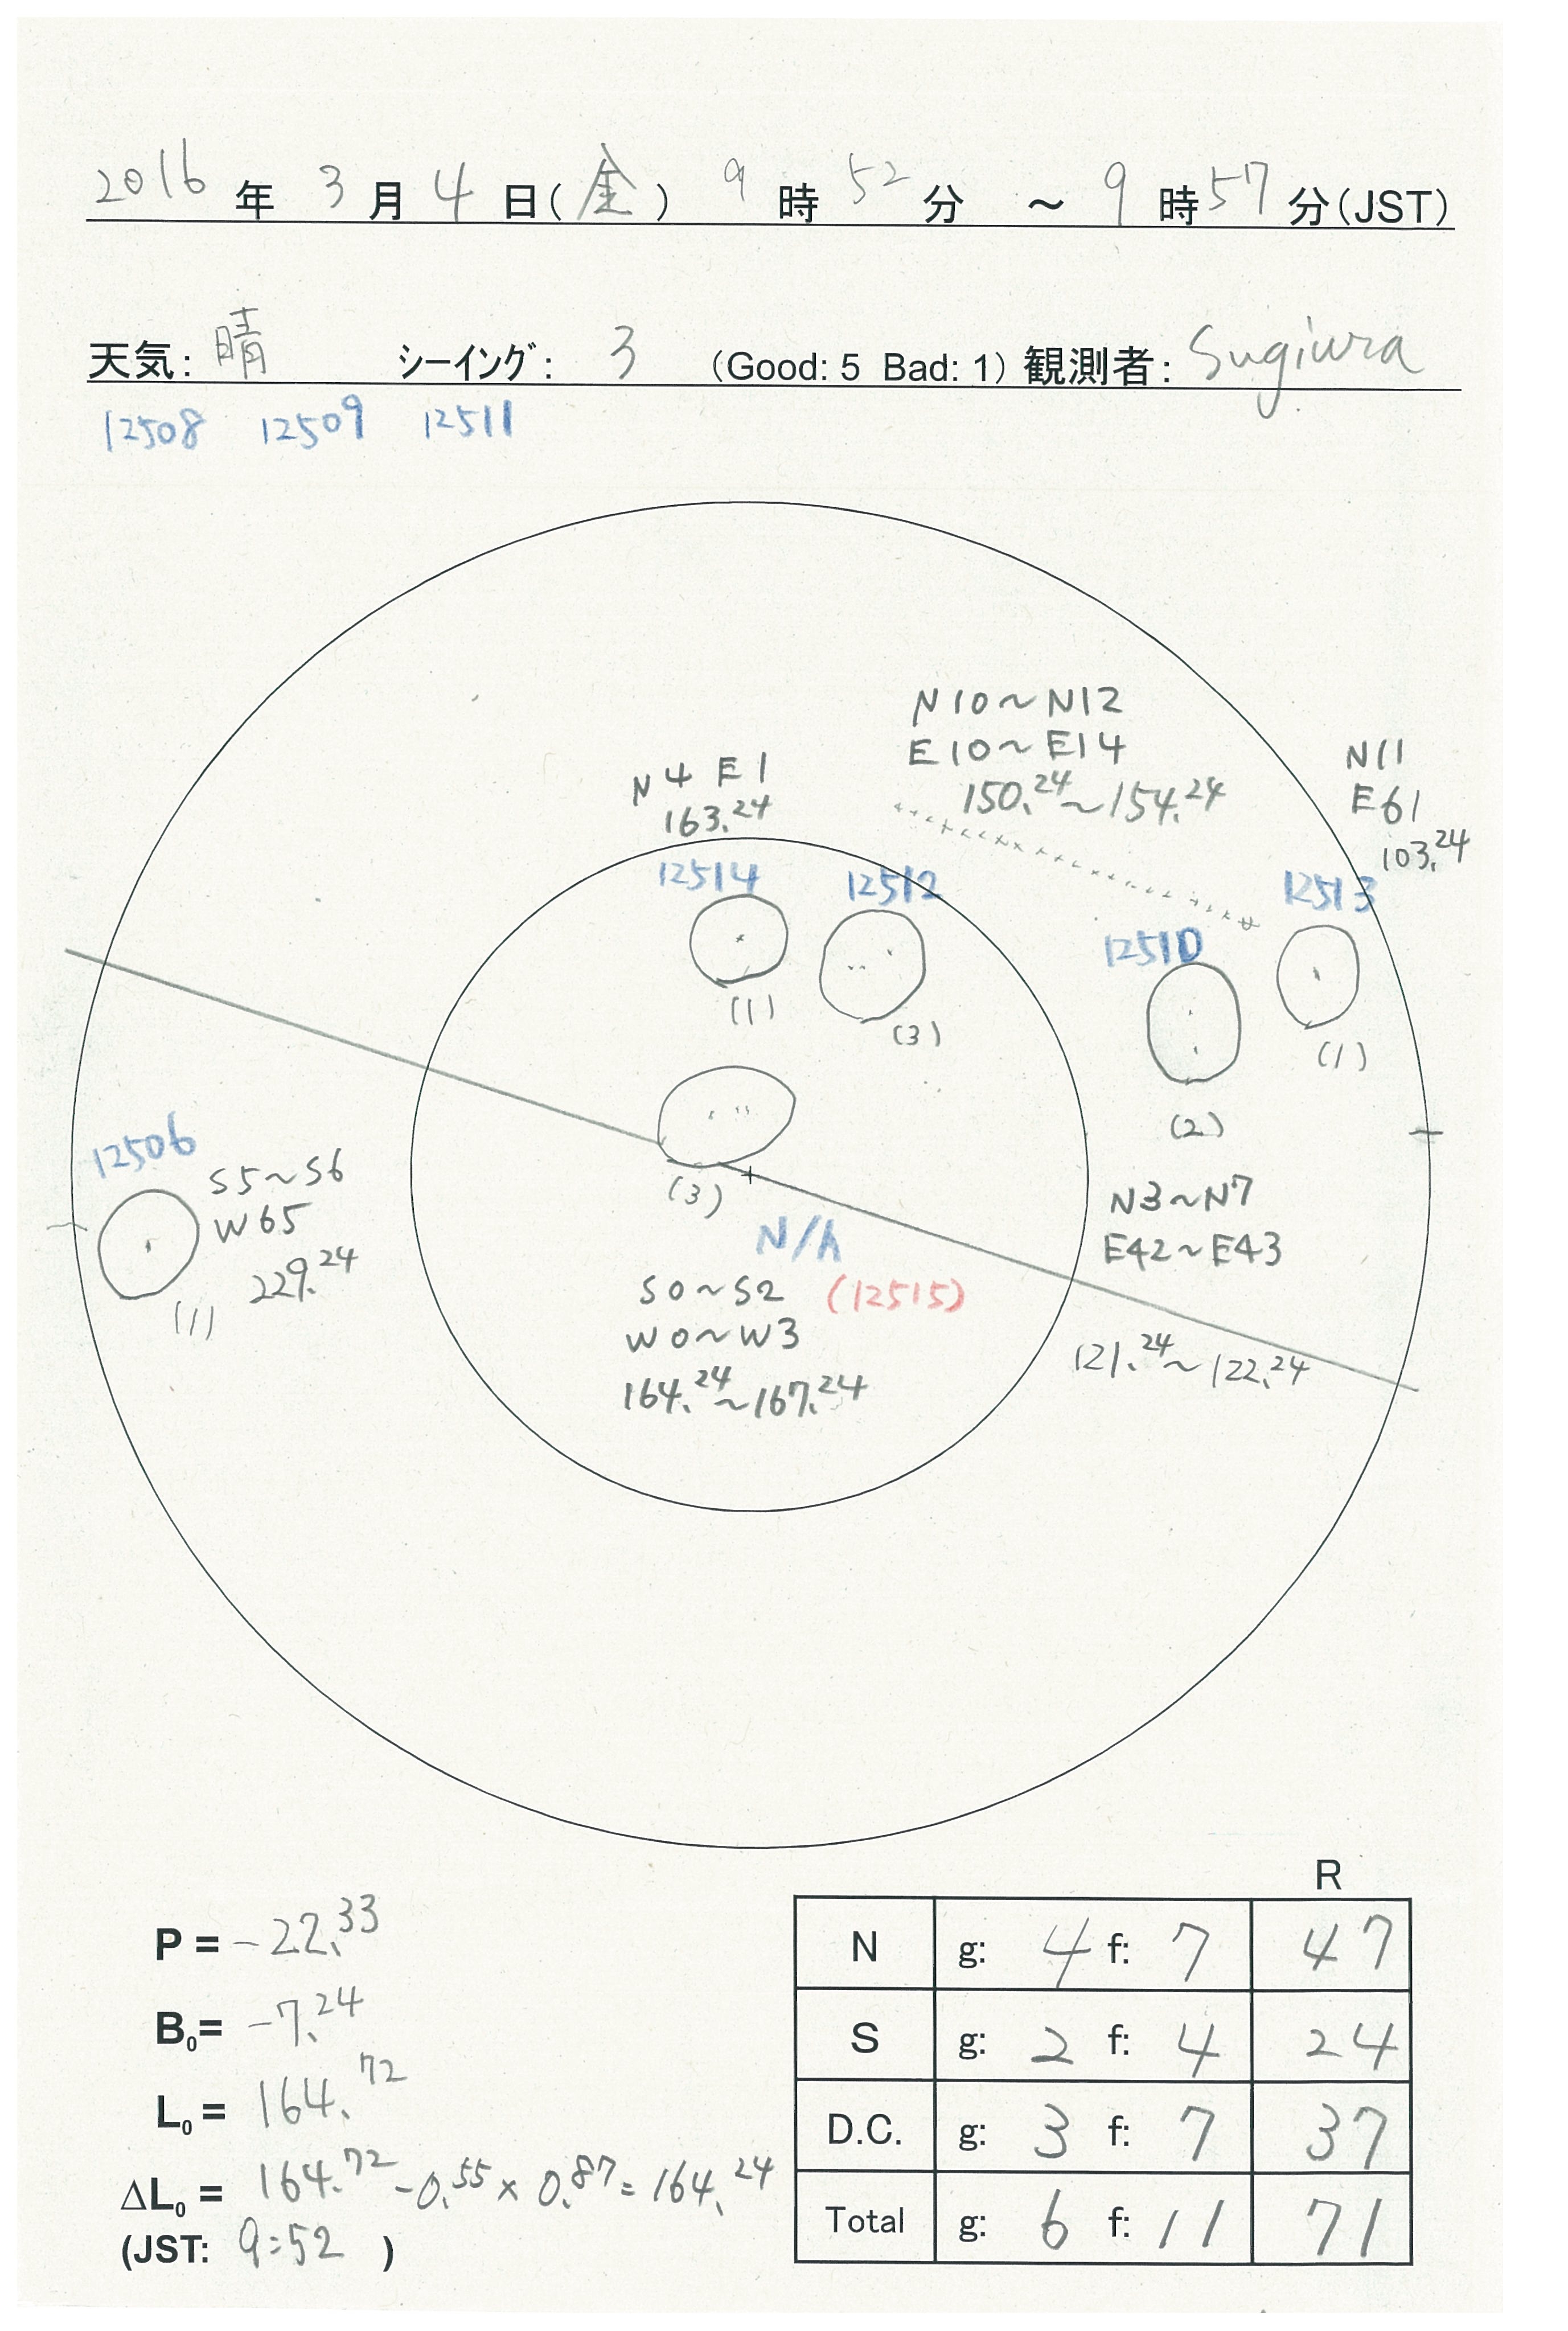 2016 年 3 月 4 日(金) 9 時 52 分 ～ 9 時 57 分(JST)
天気: 晴 シーイング: 3 (Good: 5 Bad: 1) 観測者: Sugiura
12508 12509 12511
N10～N12
E10～E14
150.24～154.24
N11
E61
103.24
N4 E1
163.24
12514
12512
12513
12510
(1)
(3)
(1)
(2)
12506
S5～S6
W65
229.24
(1)
(3)
N/A
(12515)
S0～S2
W0～W3
164.24～167.24
N3～N7
E42～E43
121.24～122.24
P = -22.33
B0= -7.24
L0 = 164.72
ΔL0 = 164.72 - 0.55 × 0.87 = 164.24
(JST: 9:52 )
R
N g: 4 f: 7 47
S g: 2 f: 4 24
D.C. g: 3 f: 7 37
Total g: 6 f: 11 71